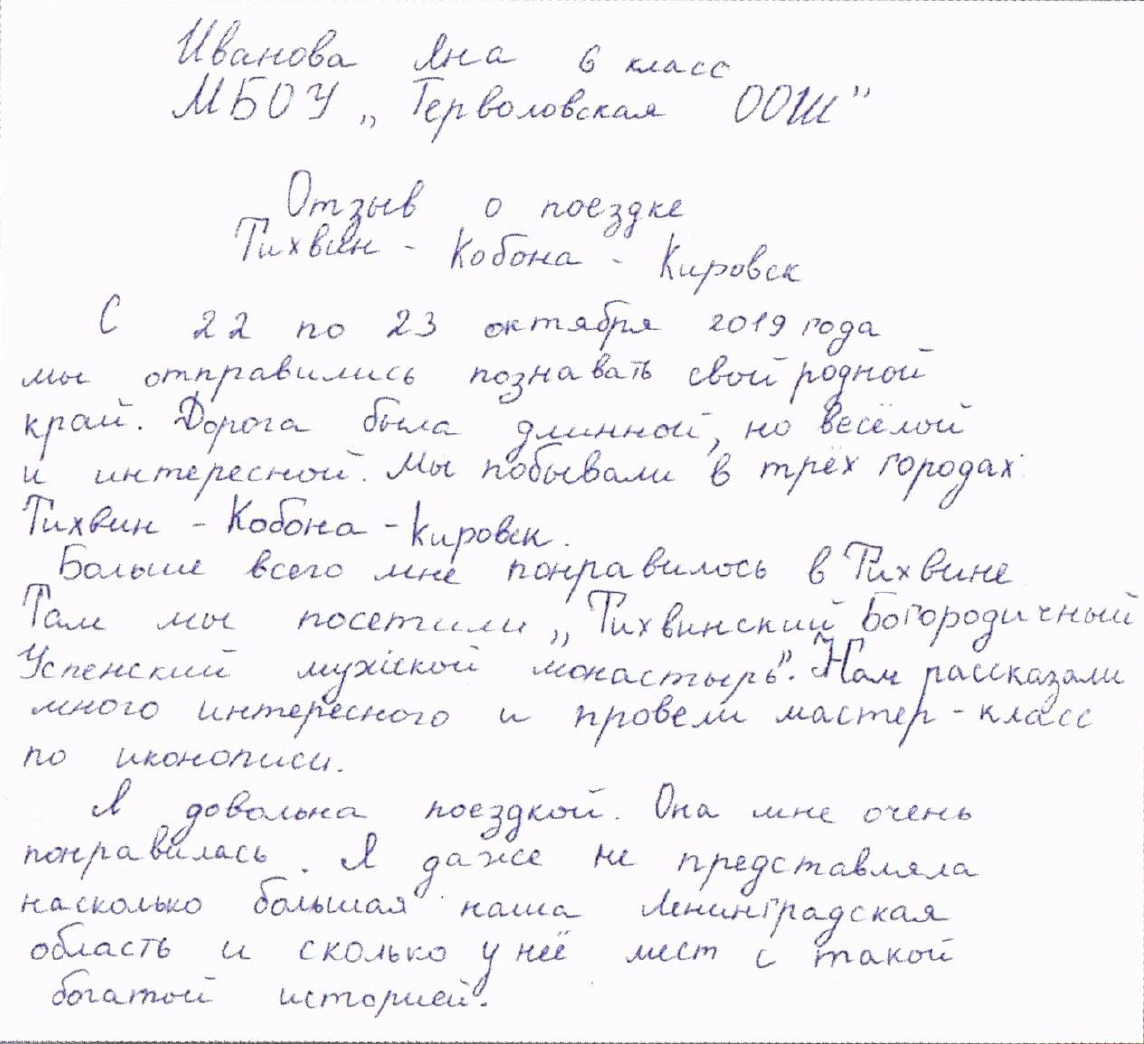 Иванова Яна 6 класс
МБОУ „Терволовская ООШ"
Отзыв о поездке
Тихвин - Кобона - Кировск
С 22 по 23 октября 2019 года
мы отправились познавать свой родной
край. Дорога была длинной, но весёлой
и интересной. Мы побывали в трёх городах:
Тихвин - Кобона - Кировск.
Больше всего мне понравилось в Тихвине
Там мы посетили „Тихвинский Богородичный
Успенский мужской монастырь". Нам рассказали
много интересного и провели мастер-класс
по иконописи.
Я довольна поездкой. Она мне очень
понравилась. Я даже не представляла
насколько большая наша Ленинградская
область и сколько у неё мест с такой
богатой историей.